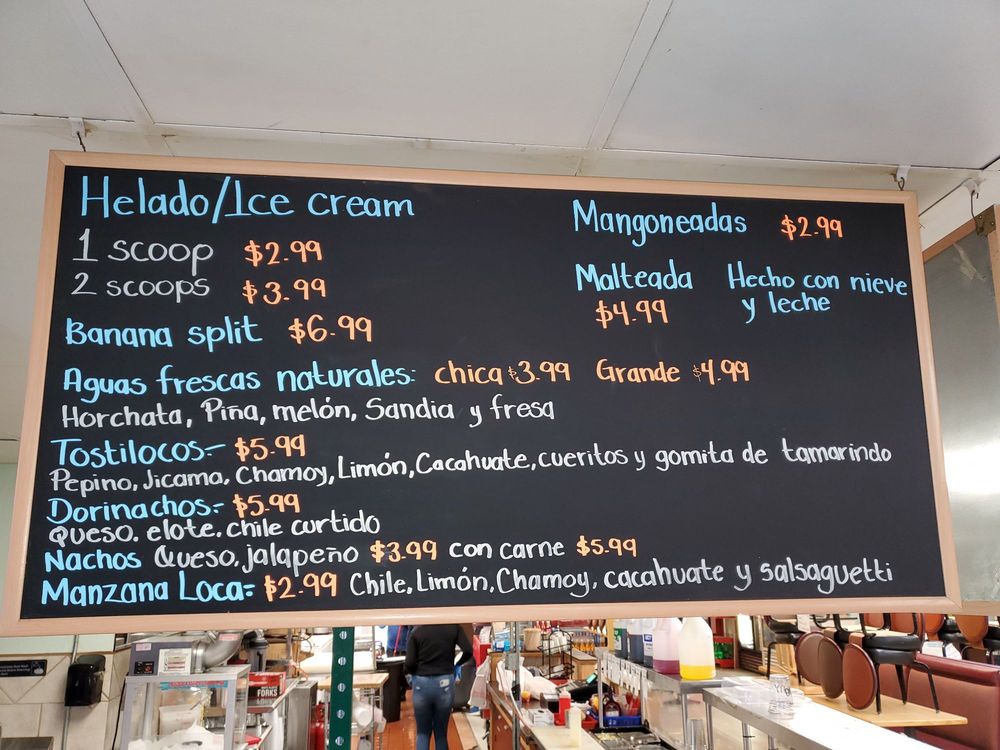 Helado/Ice cream
1 scoop $2.99
2 scoops $3.99
Banana split $6.99
Mangoneadas $2.99
Malteada Hecho con nieve
$4.99 y leche
Aguas frescas naturales: chica $3.99 Grande $4.99
Horchata, Piña, melón, Sandia y fresa
Tostilocos.- $5.99
Pepino, Jicama, Chamoy, Limón, Cacahuate, cueritos y gomita de tamarindo
Dorinachos.- $5.99
Queso. elote. chile curtido
Nachos Queso, jalapeño $3.99 con carne $5.99
Manzana Loca= $2.99 Chile, Limón, Chamoy, cacahuate y salsaguetti
FORKS